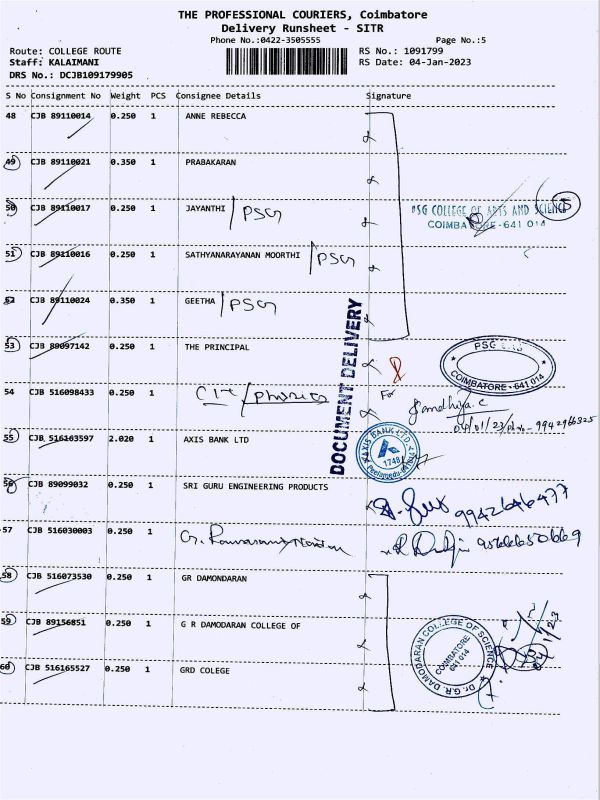 THE PROFESSIONAL COURIERS, Coimbatore
Delivery Runsheet - SITR
Phone No.:0422-3505555 Page No.:5
Route: COLLEGE ROUTE RS No.: 1091799
Staff: KALAIMANI RS Date: 04-Jan-2023
DRS No.: DCJB109179905
S No Consignment No Weight PCS Consignee Details Signature
48 CJB 89110014 0.250 1 ANNE REBECCA
49 CJB 89110021 0.350 1 PRABAKARAN
50 CJB 89110017 0.250 1 JAYANTHI / PSG
PSG COLLEGE OF ARTS AND SCIENCE
COIMBATORE - 641 014
5
51 CJB 89110016 0.250 1 SATHYANARAYANAN MOORTHI / PSG
52 CJB 89110024 0.350 1 GEETHA / PSG
DOCUMENT DELIVERY
53 CJB 89097142 0.250 1 THE PRINCIPAL
PSG
COIMBATORE - 641 014
54 CJB 516098433 0.250 1 CIT / physics
For
Sandhiya. C
9942966325
55 CJB 516163597 2.020 1 AXIS BANK LTD
AXIS BANK LTD.
1748
Peelamedu
56 CJB 89099032 0.250 1 SRI GURU ENGINEERING PRODUCTS
9942646477
57 CJB 516030003 0.250 1
9566650669
58 CJB 516073530 0.250 1 GR DAMONDARAN
59 CJB 89156851 0.250 1 G R DAMODARAN COLLEGE OF
60 CJB 516165527 0.250 1 GRD COLEGE
Dr. G.R. DAMODARAN COLLEGE OF SCIENCE
COIMBATORE
641 014